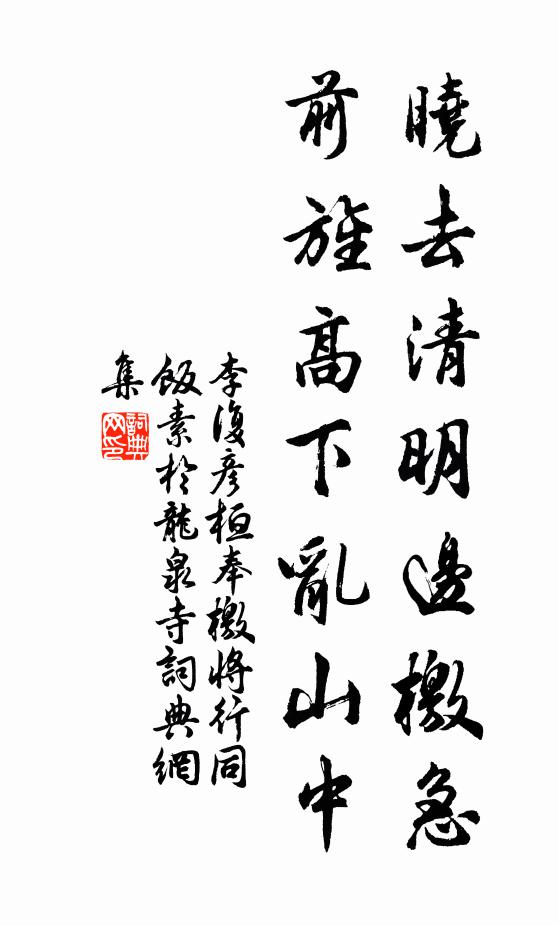 曉去清明邊檄急
前旌高下亂山中
李復彥桓奉檄將行同
飯素於龍泉寺詞典網
集
詞典
网印